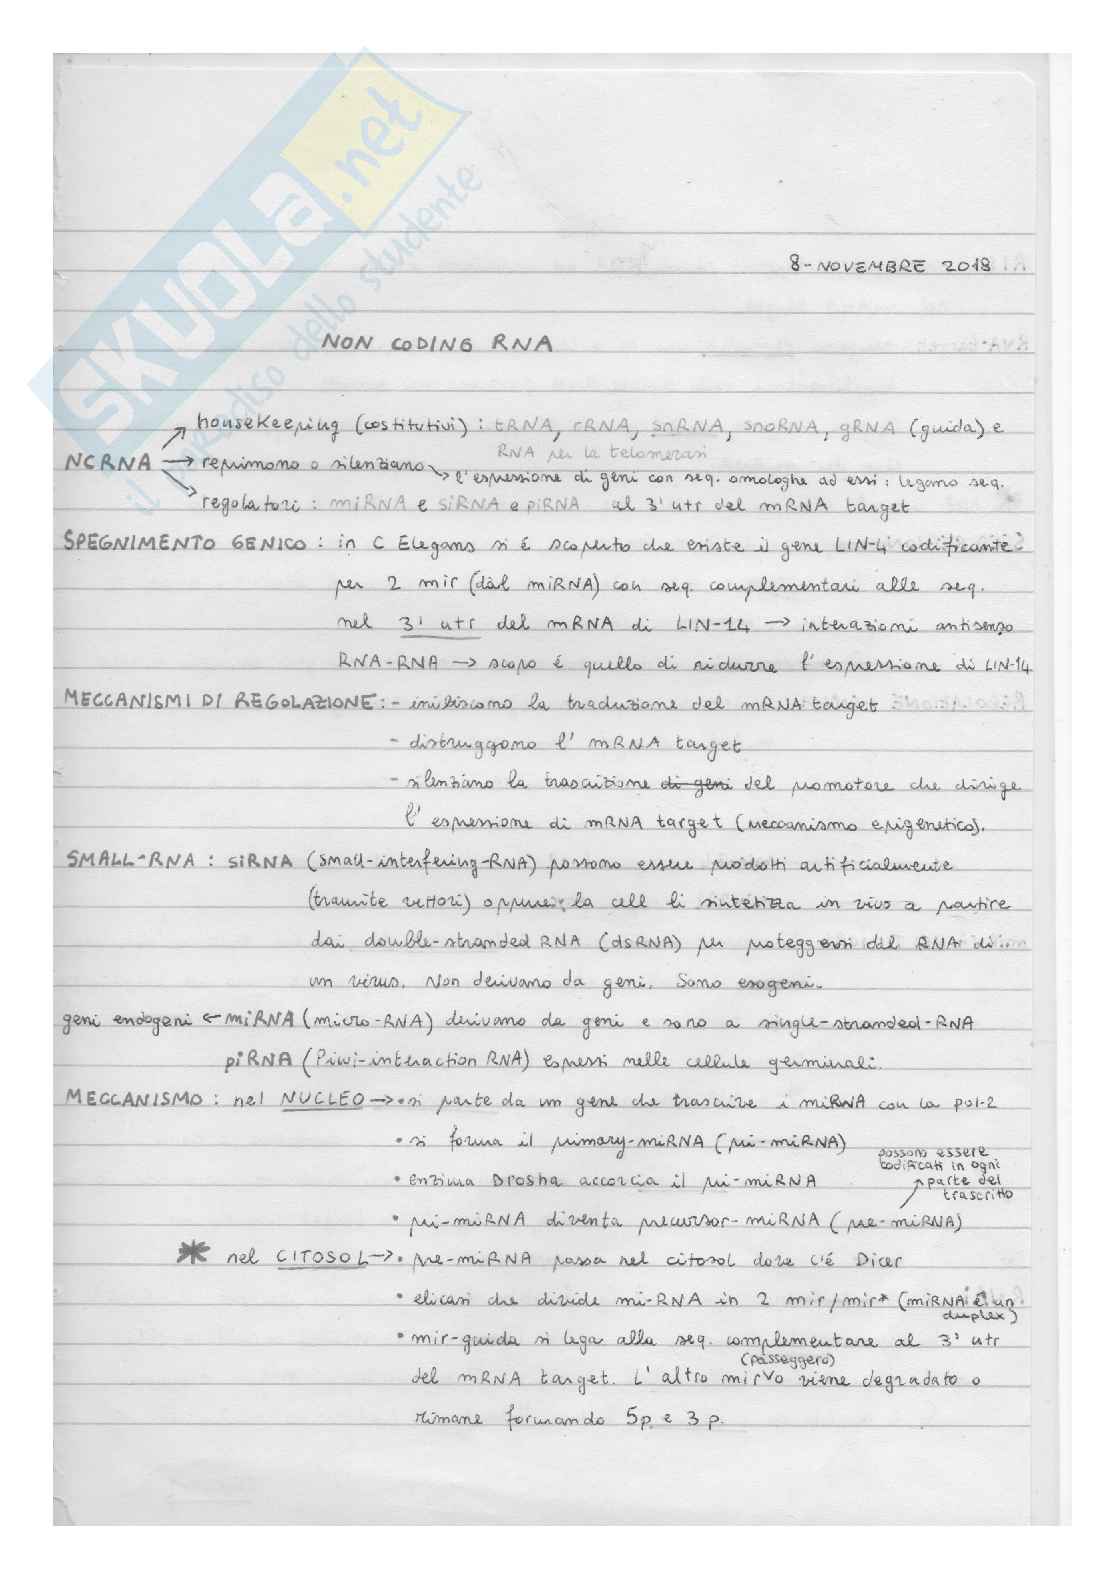 SKUOLA.net
il paradiso dello studente
8-NOVEMBRE 2018
NON CODING RNA
housekeeping (costitutivi) : tRNA, rRNA, snRNA, snoRNA, gRNA (guida) e
RNA per la telomerasi
NCRNA → reprimono o silenziano → l'espressione di geni con seq. omologhe ad essi : legano seq.
regolatori : miRNA e siRNA e piRNA al 3' utr del mRNA target
SPEGNIMENTO GENICO : in C Elegans si é scoperto che esiste il gene LIN-4 codificante
per 2 mir (dal miRNA) con seq. complementari alle seq.
nel 3' utr del mRNA di LIN-14 → interazioni antisenso
RNA-RNA → scopo é quello di ridurre l'espressione di LIN-14
MECCANISMI DI REGOLAZIONE : - inibiscono la traduzione del mRNA target
- distruggono l'mRNA target
- silenziano la trascrizione di geni del promotore che dirige
l'espressione di mRNA target (meccanismo epigenetico).
SMALL-RNA : siRNA (small-interfering-RNA) possono essere prodotti artificialmente
(tramite vettori) oppure la cell li sintetizza in vivo a partire
dai double-stranded RNA (dsRNA) per proteggersi dal RNA di
un virus. Non derivano da geni. Sono esogeni.
geni endogeni ← miRNA (micro-RNA) derivano da geni e sono a single-stranded-RNA
piRNA (Piwi-interaction RNA) espressi nelle cellule germinali.
MECCANISMO : nel NUCLEO → • si parte da un gene che trascrive i miRNA con la pol-2
• si forma il primary-miRNA (pri-miRNA)
possono essere
codificati in ogni
parte del
trascritto
• enzima Drosha accorcia il pri-miRNA
• pri-miRNA diventa precursor-miRNA (pre-miRNA)
* nel CITOSOL → • pre-miRNA passa nel citosol dove c'é Dicer
• elicasi che divide mi-RNA in 2 mir/mir* (miRNA é un
duplex)
• mir-guida si lega alla seq. complementare al 3' utr
(passeggero)
del mRNA target. L'altro mir viene degradato o
rimane formando 5p e 3p.